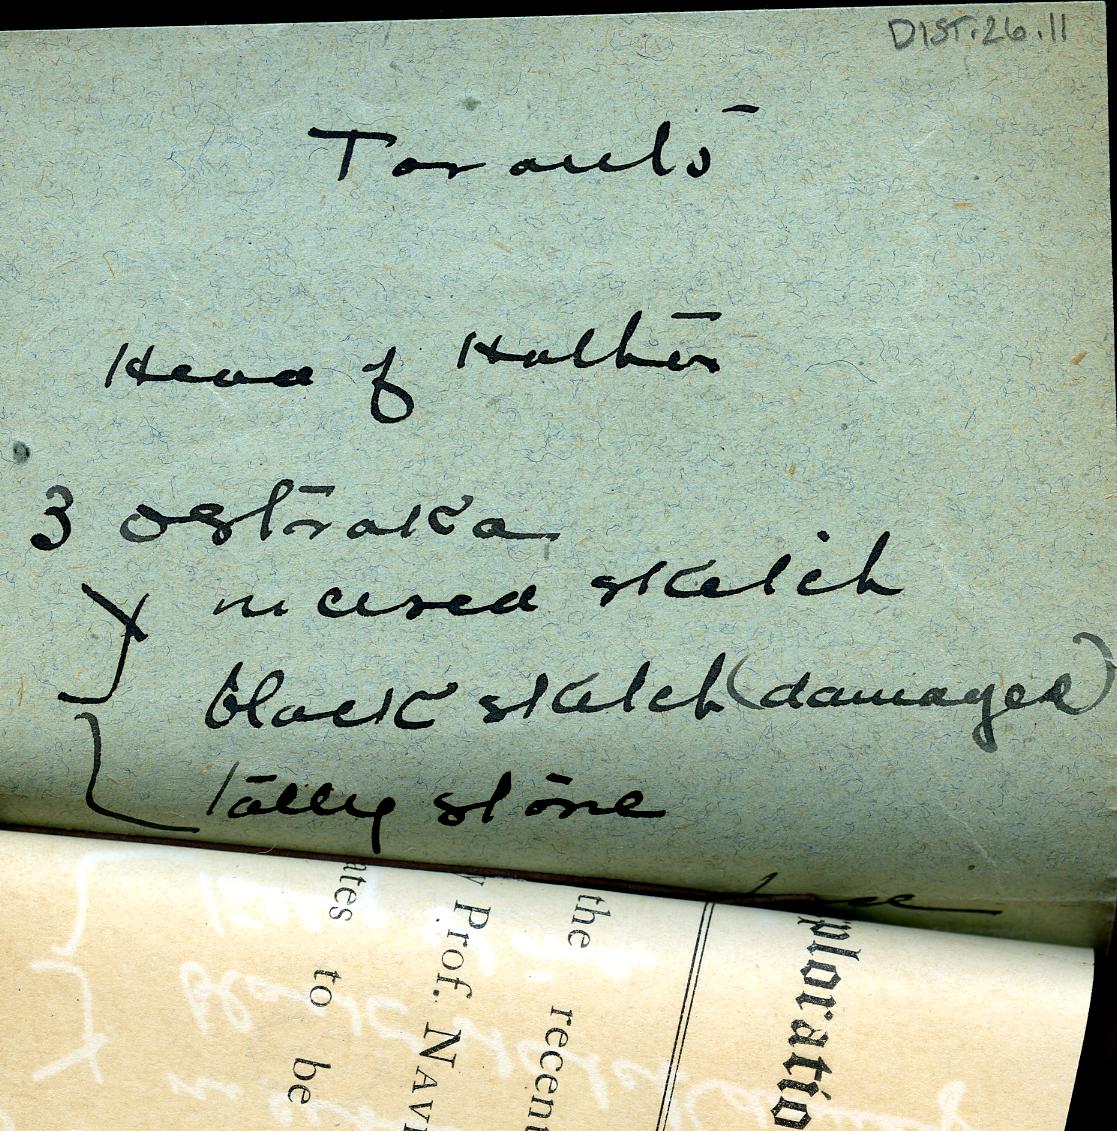 DIST.26.11
Toronto
Head of Hathor
3 ostraka
incised sketch
black sketch (damaged)
tally stone
ates to be
Prof. NAV
the recent
ploratio